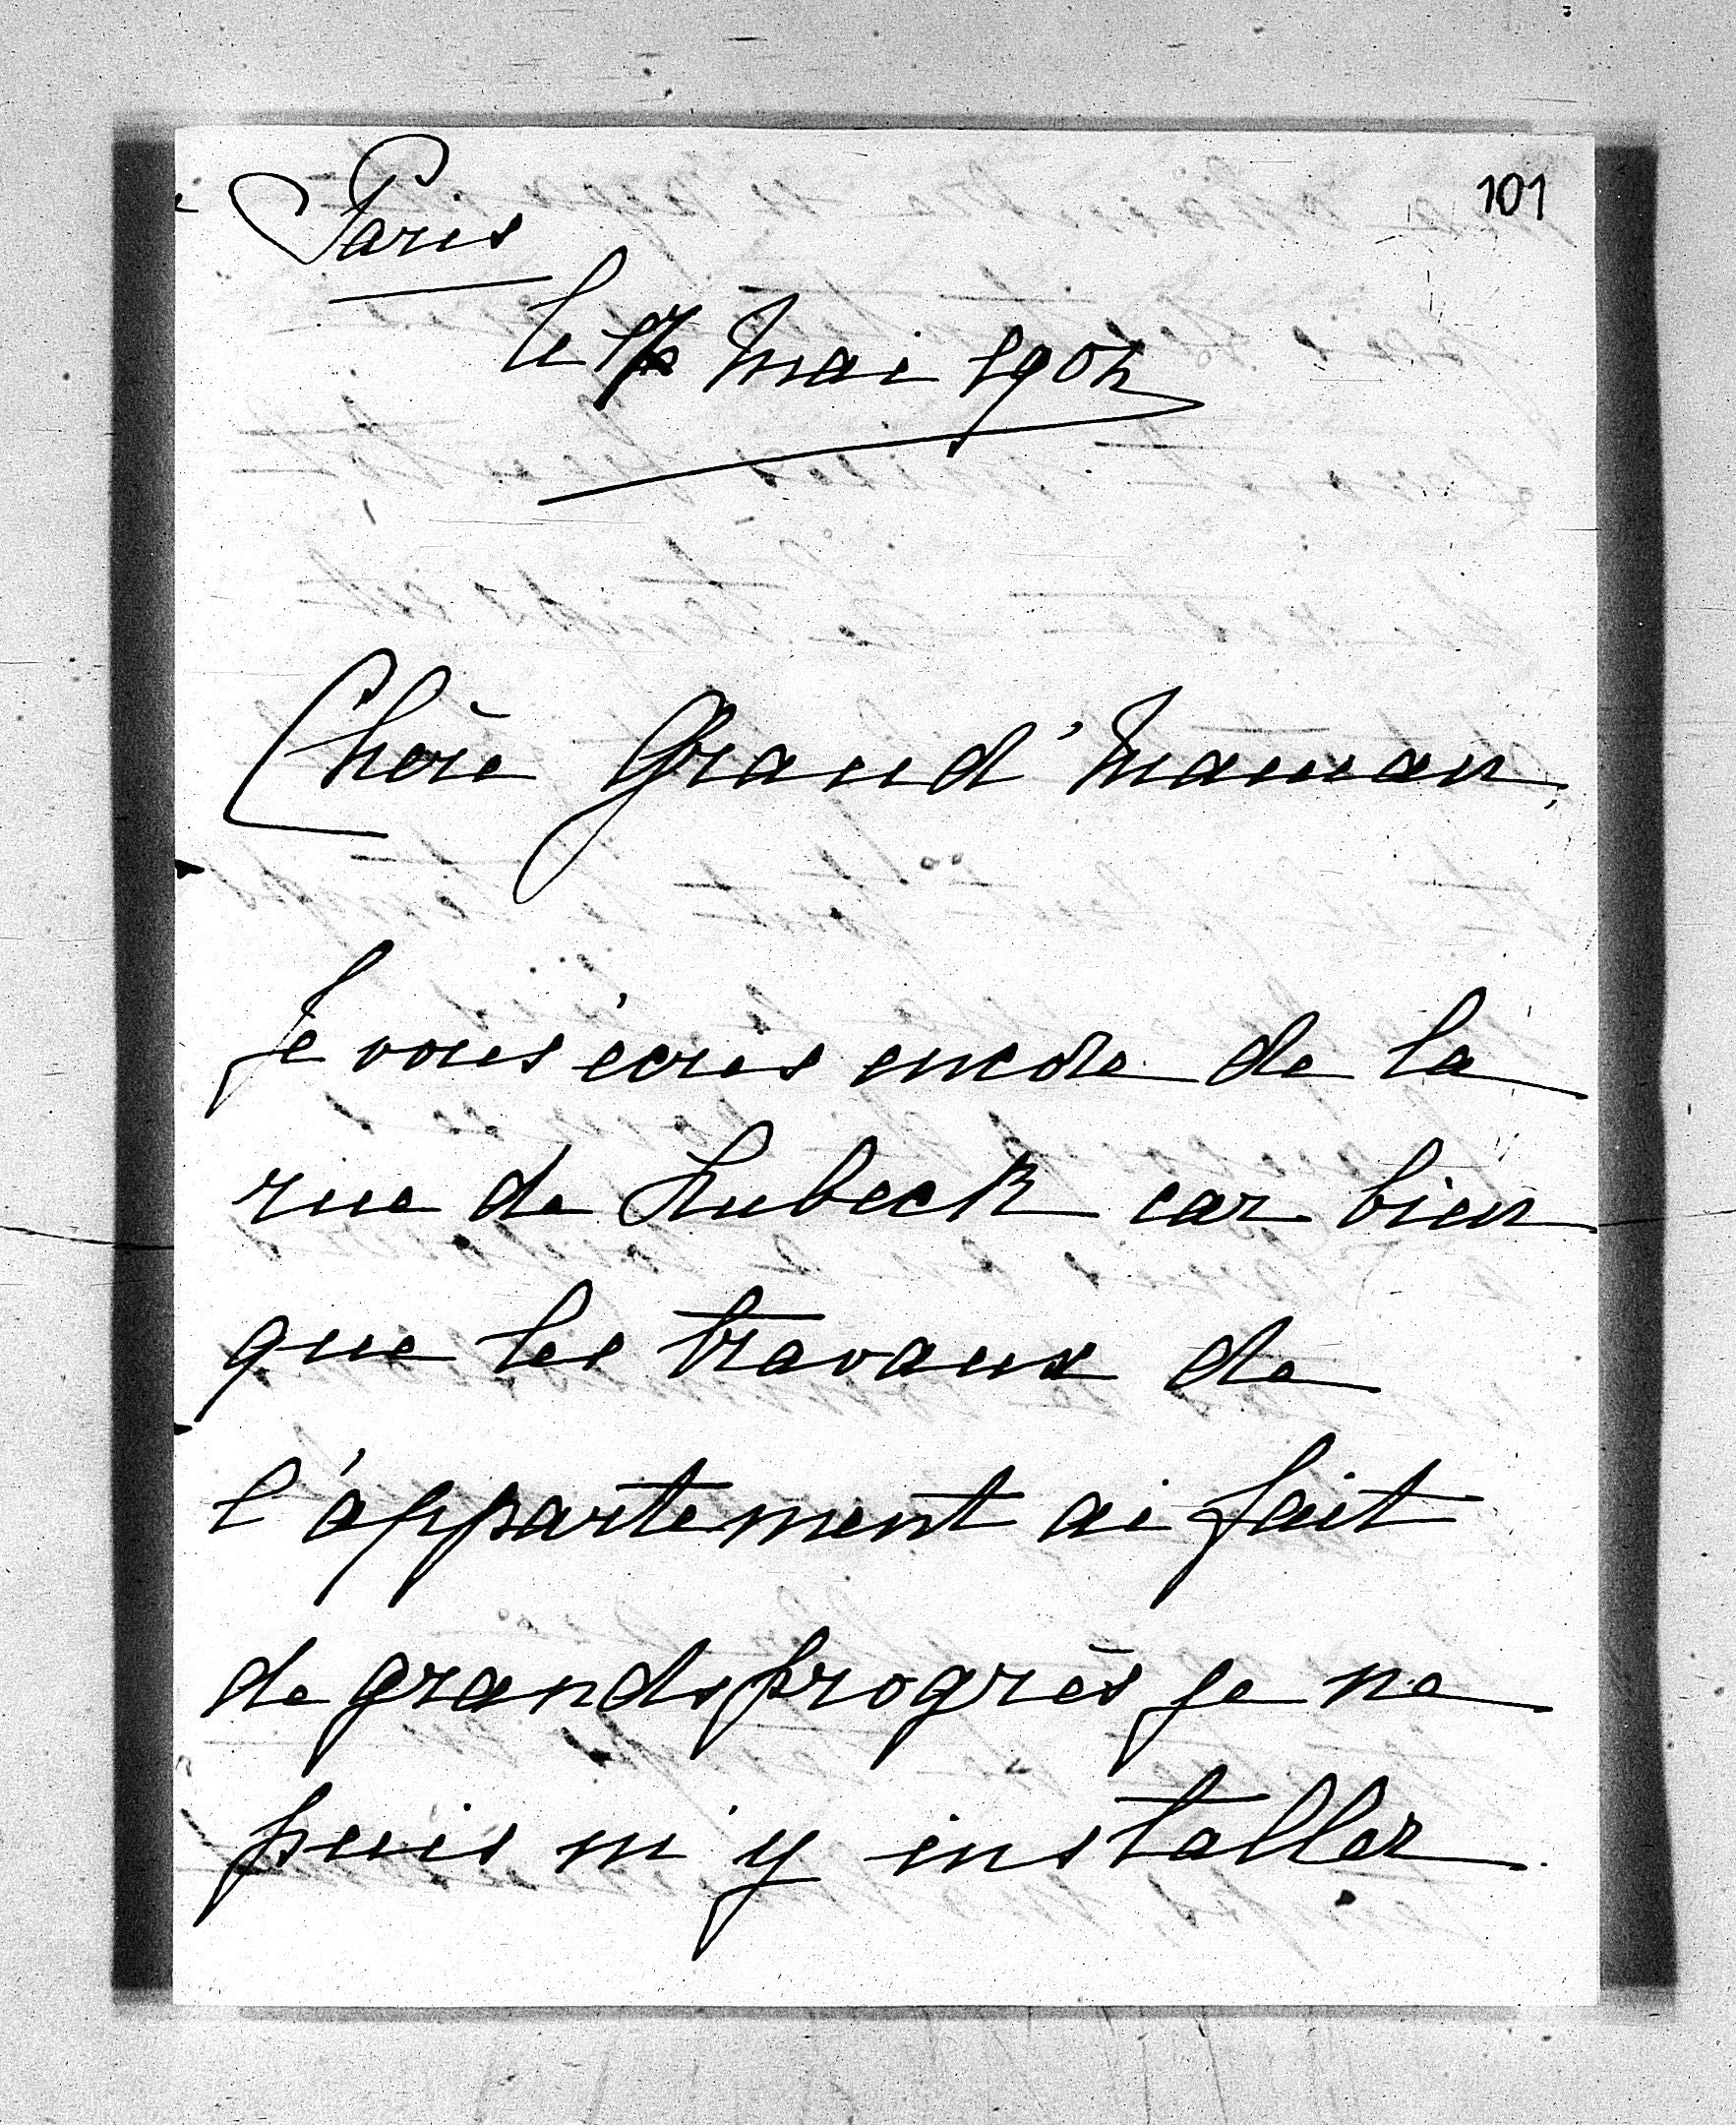 101
Paris
le 17 Mai 1904
Chère Grand'Maman,
Je vous écris encore de la
rue de Lubeck car bien
que les travaux de
l'appartement ai fait
de grands progrès je ne
puis m'y installer